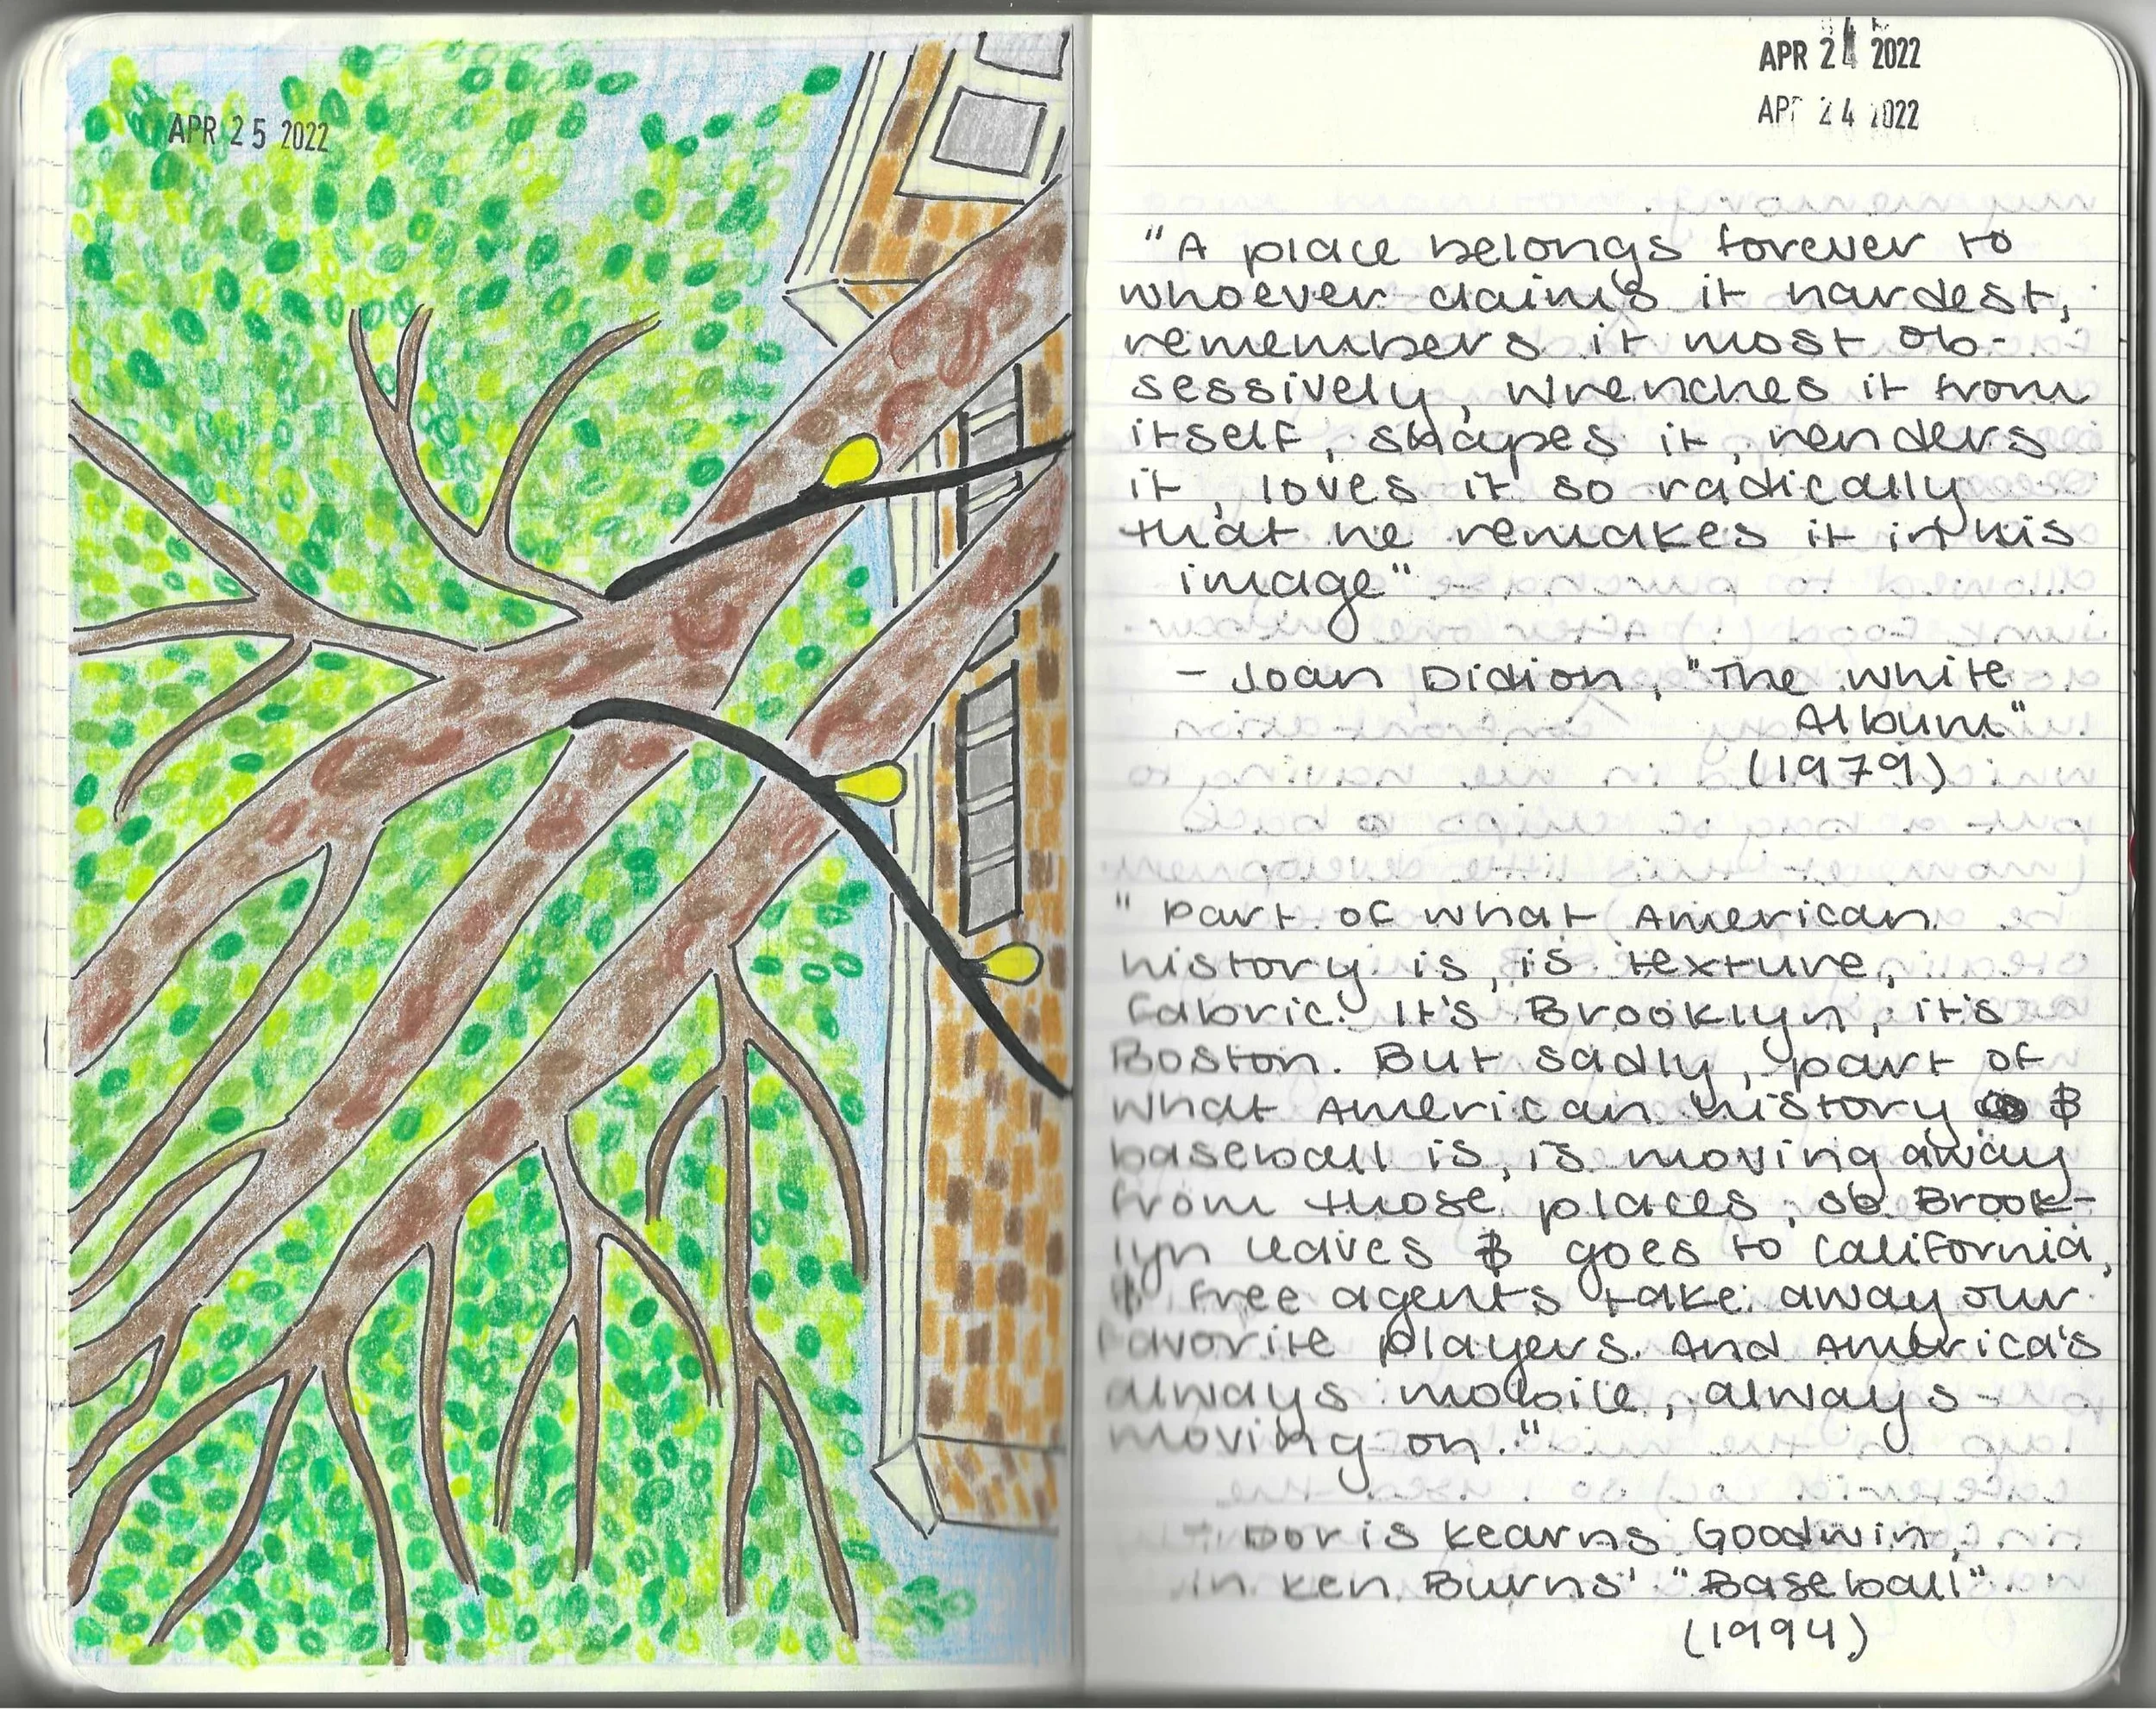 APR 25 2022
APR 24 2022
APR 24 2022
"A place belongs forever to
whoever claims it hardest,
remembers it most ob-
sessively, wrenches it from
itself, shapes it, renders
it, loves it so radically
that he remakes it in his
image"
- Joan Didion, "The White
Album"
(1979)
"Part of what American
history is, is texture,
fabric. It's Brooklyn, it's
Boston. But sadly, part of
what American history &
baseball is, is moving away
from those places, so Brook-
lyn leaves & goes to California,
& free agents take away our
favorite players. And America's
always mobile, always
moving on."
- Doris Kearns Goodwin,
in Ken Burns' "Baseball"
(1994)